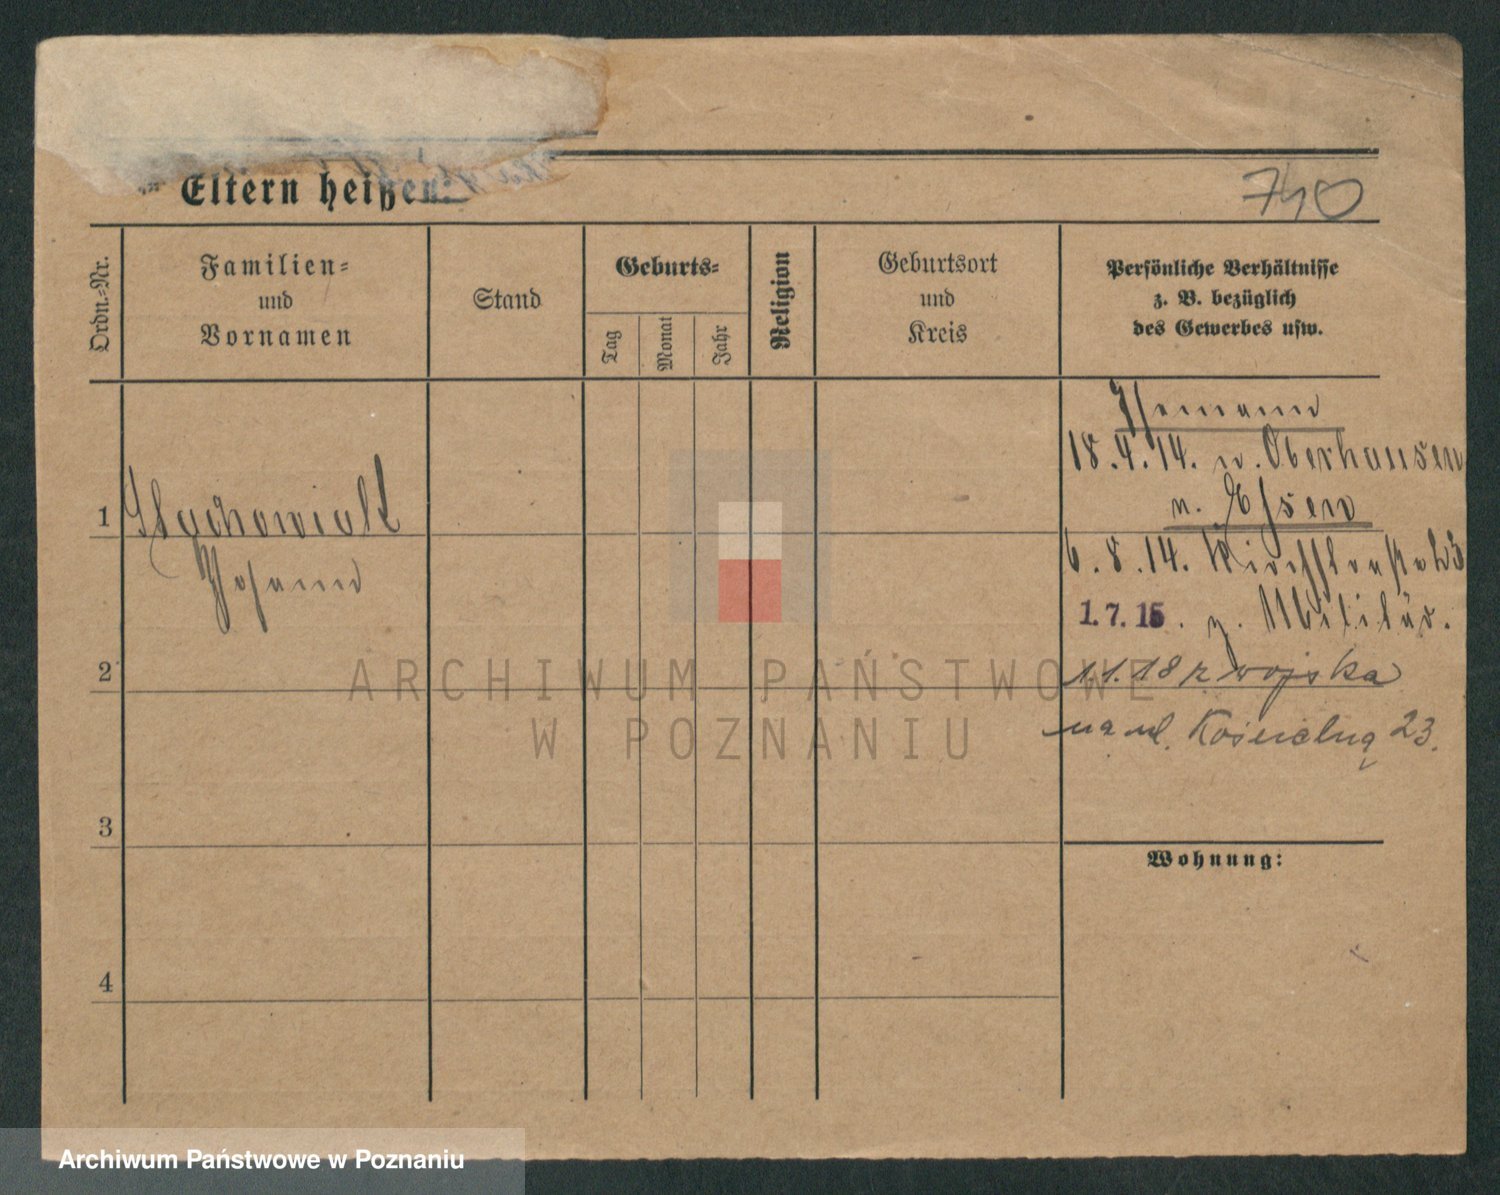 Eltern heißen:
740
Ordn.-Nr.
Familien-
und
Vornamen
Stand
Geburts-
Tag
Monat
Jahr
Religion
Geburtsort
und
Kreis
Persönliche Verhältnisse
z. B. bezüglich
des Gewerbes usw.
18.4.14. n. Oberhausen
n. Essen
1
Stachowiak
Johann
6.8.14. Kirchstraße 23
1.7.15. z. Militär.
2
1.1.18 z wojska
na ul. Kościelną 23.
3
Wohnung:
4
ARCHIWUM PAŃSTWOWE
W POZNANIU
Archiwum Państwowe w Poznaniu